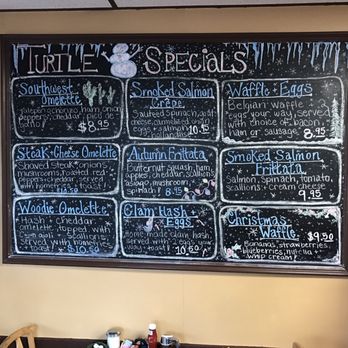 TURTLE SPECIALS
Southwest
Omelette
jalapeño, chorizo, ham, onion,
peppers, cheddar, pico de
$8.95
Smoked Salmon
Crepe
Sauteed Spinach, goat
cheese, caramelized onion,
eggs + salmon
10.95
Waffle + Eggs
Belgian waffle + 2
eggs your way, served
with choice of bacon,
ham or sausage. 8.95
Steak + Cheese Omelette
Shaved Steak, onion,
mushrooms, roasted red
peppers + cheddar, served
with homefries + toast!
Autumn Frittata
Butternut squash, ham,
scallions,
asiago, mushroom,
Smoked Salmon
Frittata
Salmon, Spinach, tomato,
scallions + cream cheese
9.95
Woodie Omelette
Hash + cheddar
omelette, topped with
scallions,
served with homefries
+ toast! $10.50
Clam Hash +
Eggs
Home made clam hash
served with 2 eggs your
way + toast! 10.50
Christmas
Waffle $9.50
Bananas, strawberries,
blueberries, nutella +
whip cream!